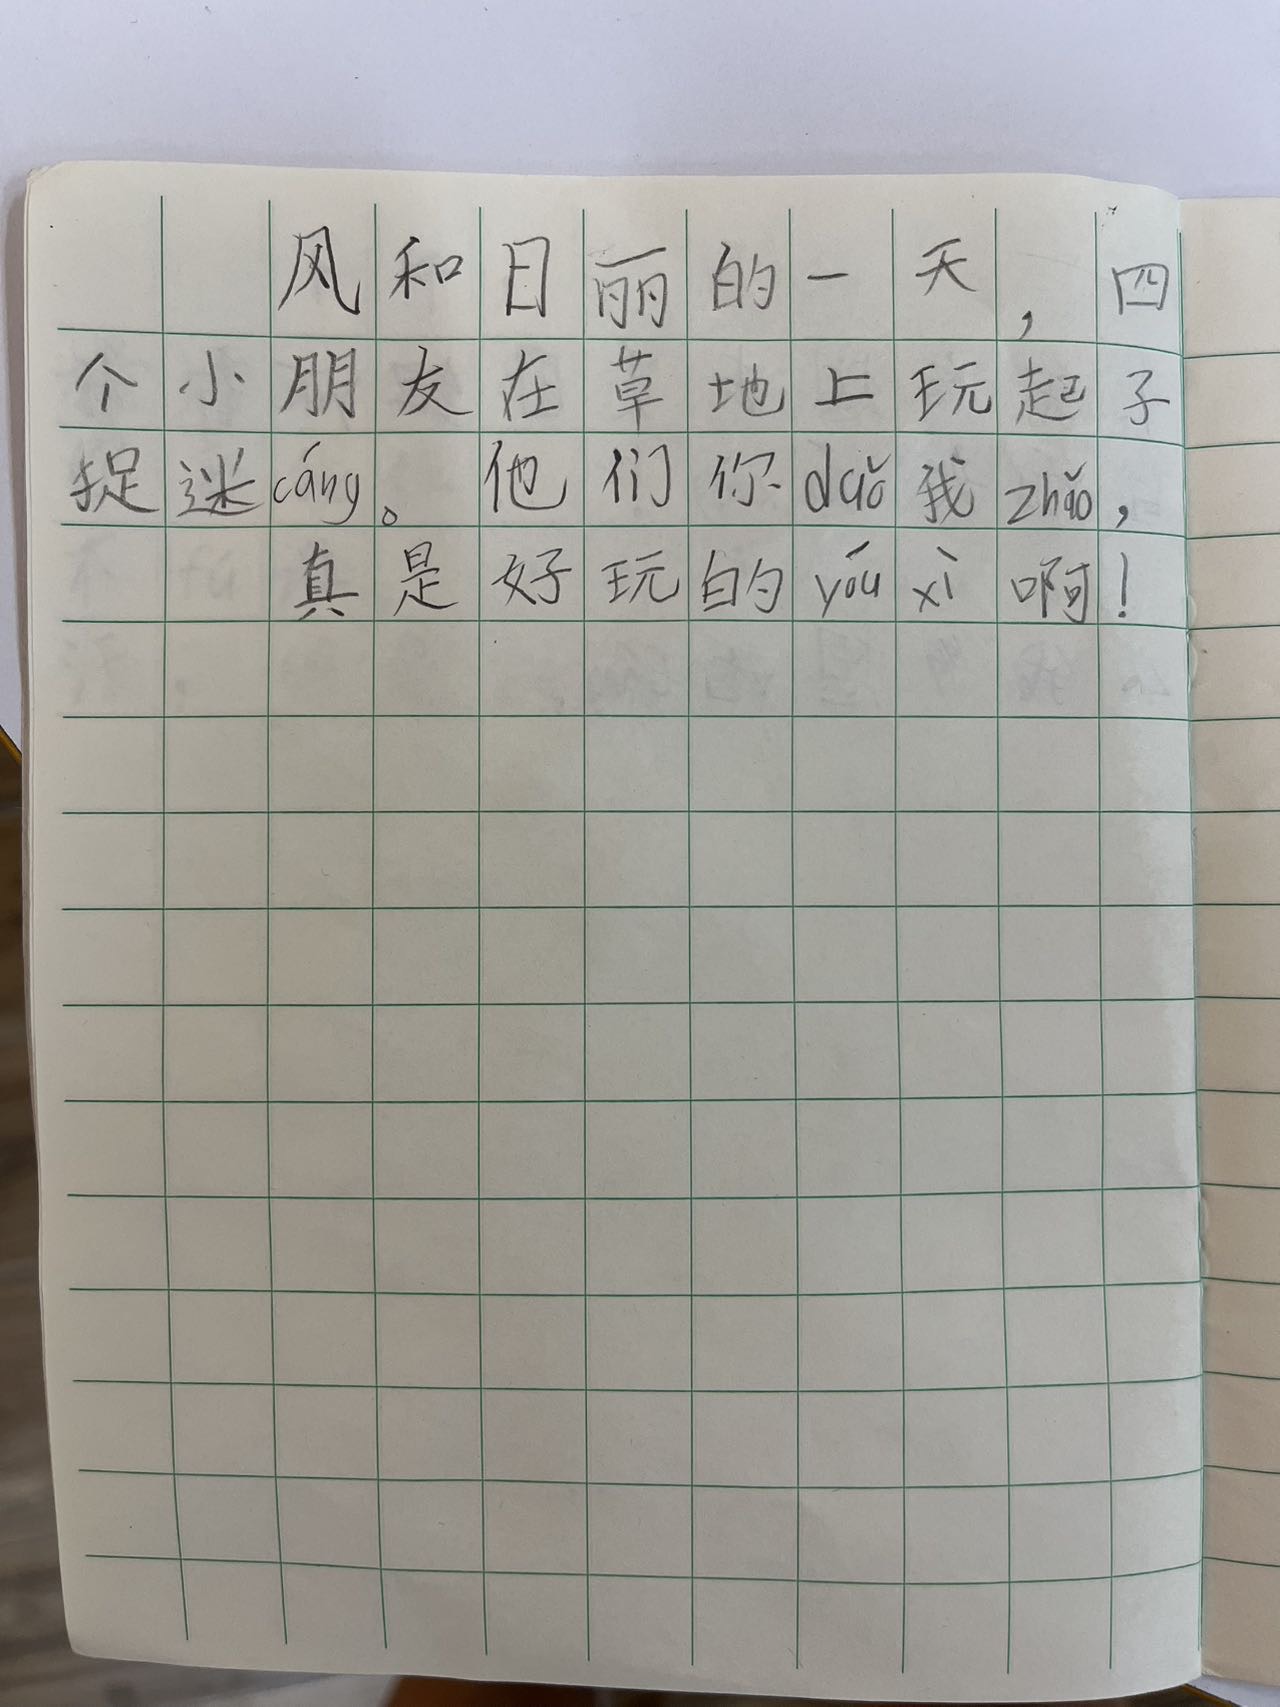 风和日丽的一天，四
个小朋友在草地上玩起子
捉迷cáng。他们你duǒ我zhǎo，
真是好玩的yóu xì啊！